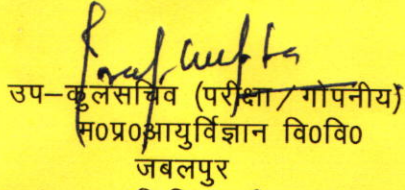 उप–कुलसचिव (परीक्षा/गोपनीय)
म०प्र०आयुर्विज्ञान वि०वि०
जबलपुर